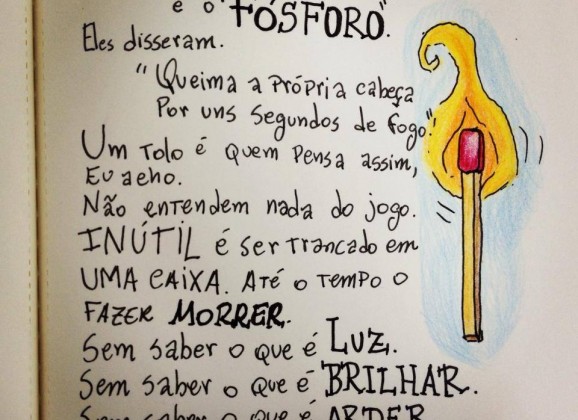 e o "FÓSFORO".
Eles disseram.
"Queima a própria cabeça
Por uns segundos de fogo."
Um tolo é quem pensa assim,
Eu acho.
Não entendem nada do jogo.
INÚTIL é ser trancado em
UMA CAIXA. Até o tempo o
FAZER MORRER.
Sem saber o que é LUZ.
Sem saber o que é BRILHAR.
Sem saber o que é ARDER